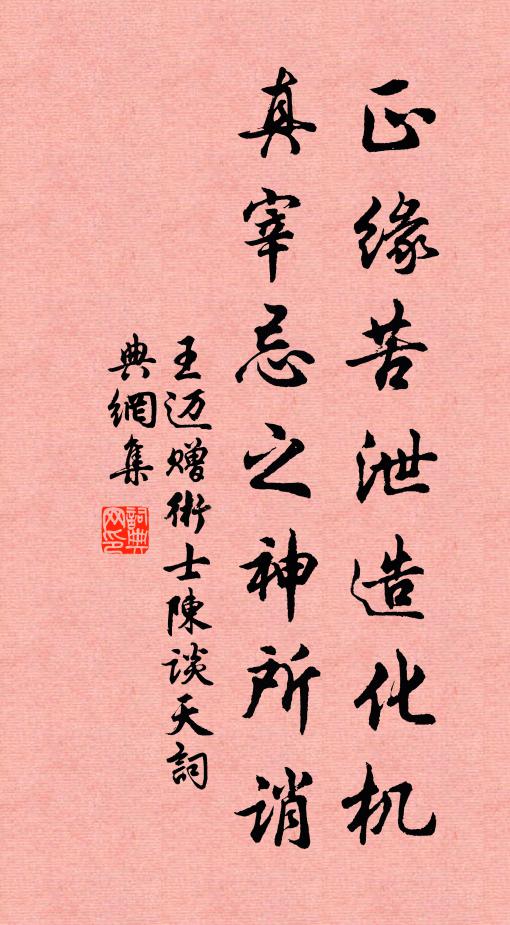 正缘苦泄造化机
真宰忌之神所诮
王迈赠術士陳谈天詞
典網集
詞典网印